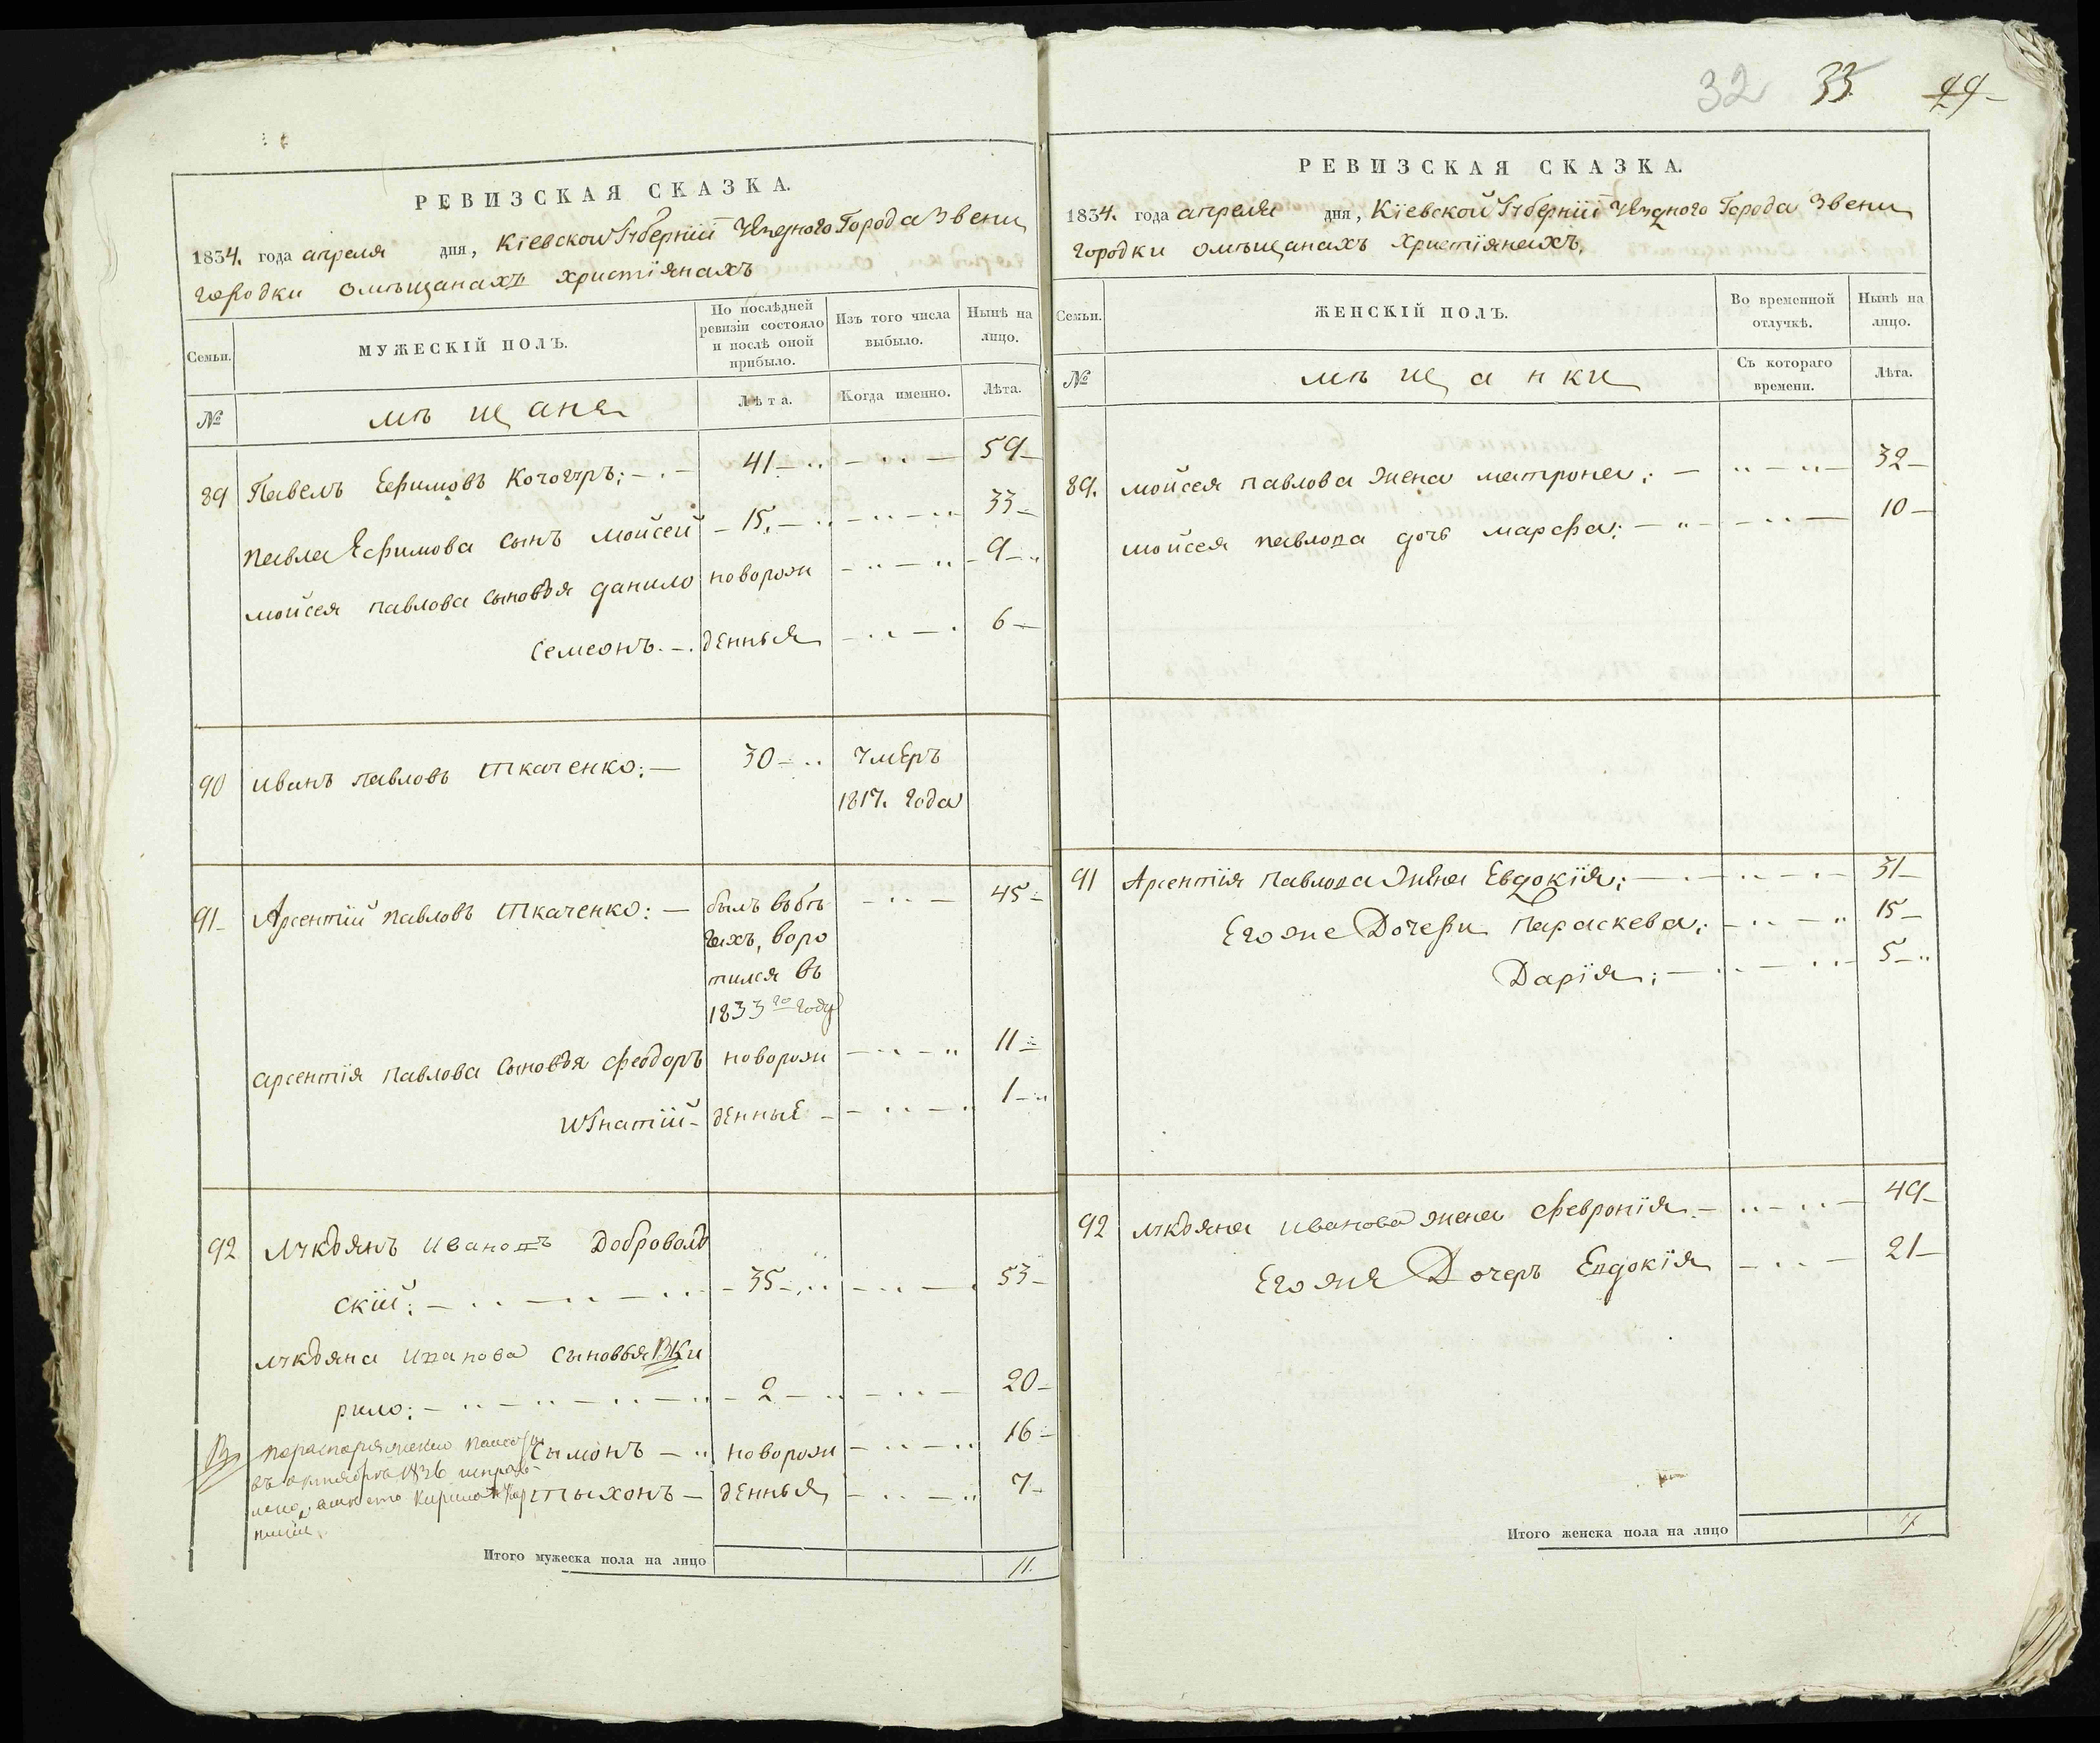 РЕВИЗСКАЯ СКАЗКА.
1834. года апреля дня, Кіевской Губерніи Уезднаго Города Звени
городки омъщанахъ христіянахъ
Семьи.
МУЖЕСКІЙ ПОЛЪ.
По послѣдней ревизіи состояло и послѣ оной прибыло.
Изъ того числа выбыло.
Нынѣ на лицо.
№
мъщане
Лѣта.
Когда именно.
Лѣта.
89 Павелъ Ефимовъ 41 59
Павла Ефимова сынъ мойсей 15. 33
мойсея павлова сыновья данило новорож 9
семеонъ. денныя 6
90 иванъ павловъ ткаченко; 30 умеръ
1817. года
91 Арсентій павловъ ткаченко: былъ вбѣ 45
гахъ, воро
тился въ
1833го году
арсентія павлова сыновья феодоръ новорож 11
игнатій денные 1
92 лукьянъ ивановъ Доброволь
скій; 35 53
лукьяна иванова сыновья Ки
рило; 2 20
Сымонъ новорож 16
тыхонъ денныя 7
Итого мужеска пола на лицо 11.
32 33 44
РЕВИЗСКАЯ СКАЗКА.
1834. года апреля дня, Кіевской Губерніи Уезднаго Города Звени
городки омъщанахъ христіянахъ.
Семьи.
ЖЕНСКІЙ ПОЛЪ.
Во временной отлучкѣ.
Нынѣ на лицо.
№
мъщанки
Съ котораго времени.
Лѣта.
89. мойсея павлова жена матрона; 32
мойсея павлова дочь марфа; 10
91 Арсентія павлова жена Евдокія; 31
Его же Дочери параскева; 15
Дарія; 5
92 лукьяна иванова жена февронія 49
Его же Дочерь Евдокія 21
Итого женска пола на лицо 7